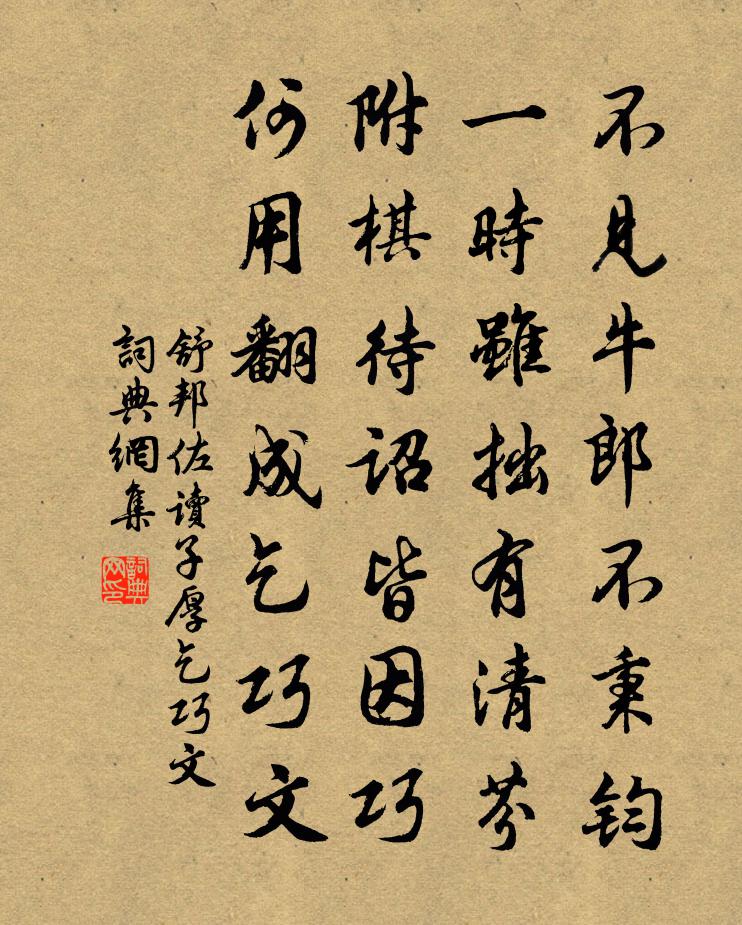 不見牛郎不秉鈞
一時雖拙有清芬
附棋待詔皆因巧
何用翻成乞巧文
舒邦佐讀子厚乞巧文
詞典網集
詞典網印